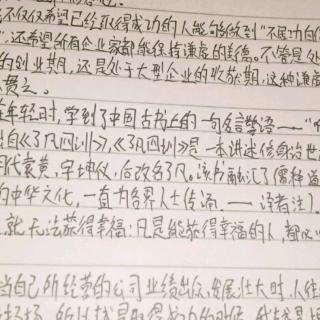 不仅仅希望已经取得成功的人能够做到“不居功自傲
”,还希望所有企业家都能保持谦虚的美德。不管是处
的创业期,还是处于大型企业的收获期,这种谦虚
贯之。
年轻时,学到了中国古书上的一句名言警语——“
自《了凡四训》,《了凡四训》是一本讲述修身治世
代袁黄,字坤仪,后改名了凡。该书融汇了儒释道
的中华文化,一直为各界人士传诵。——译者注).
就无法获得幸福;凡是能获得幸福的人,都
当自己所经营的公司业绩出众,发展壮大时,人往